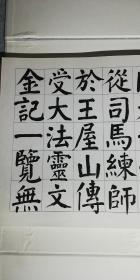 從司馬練師
於王屋山傳
受大法靈文
金記一覽無